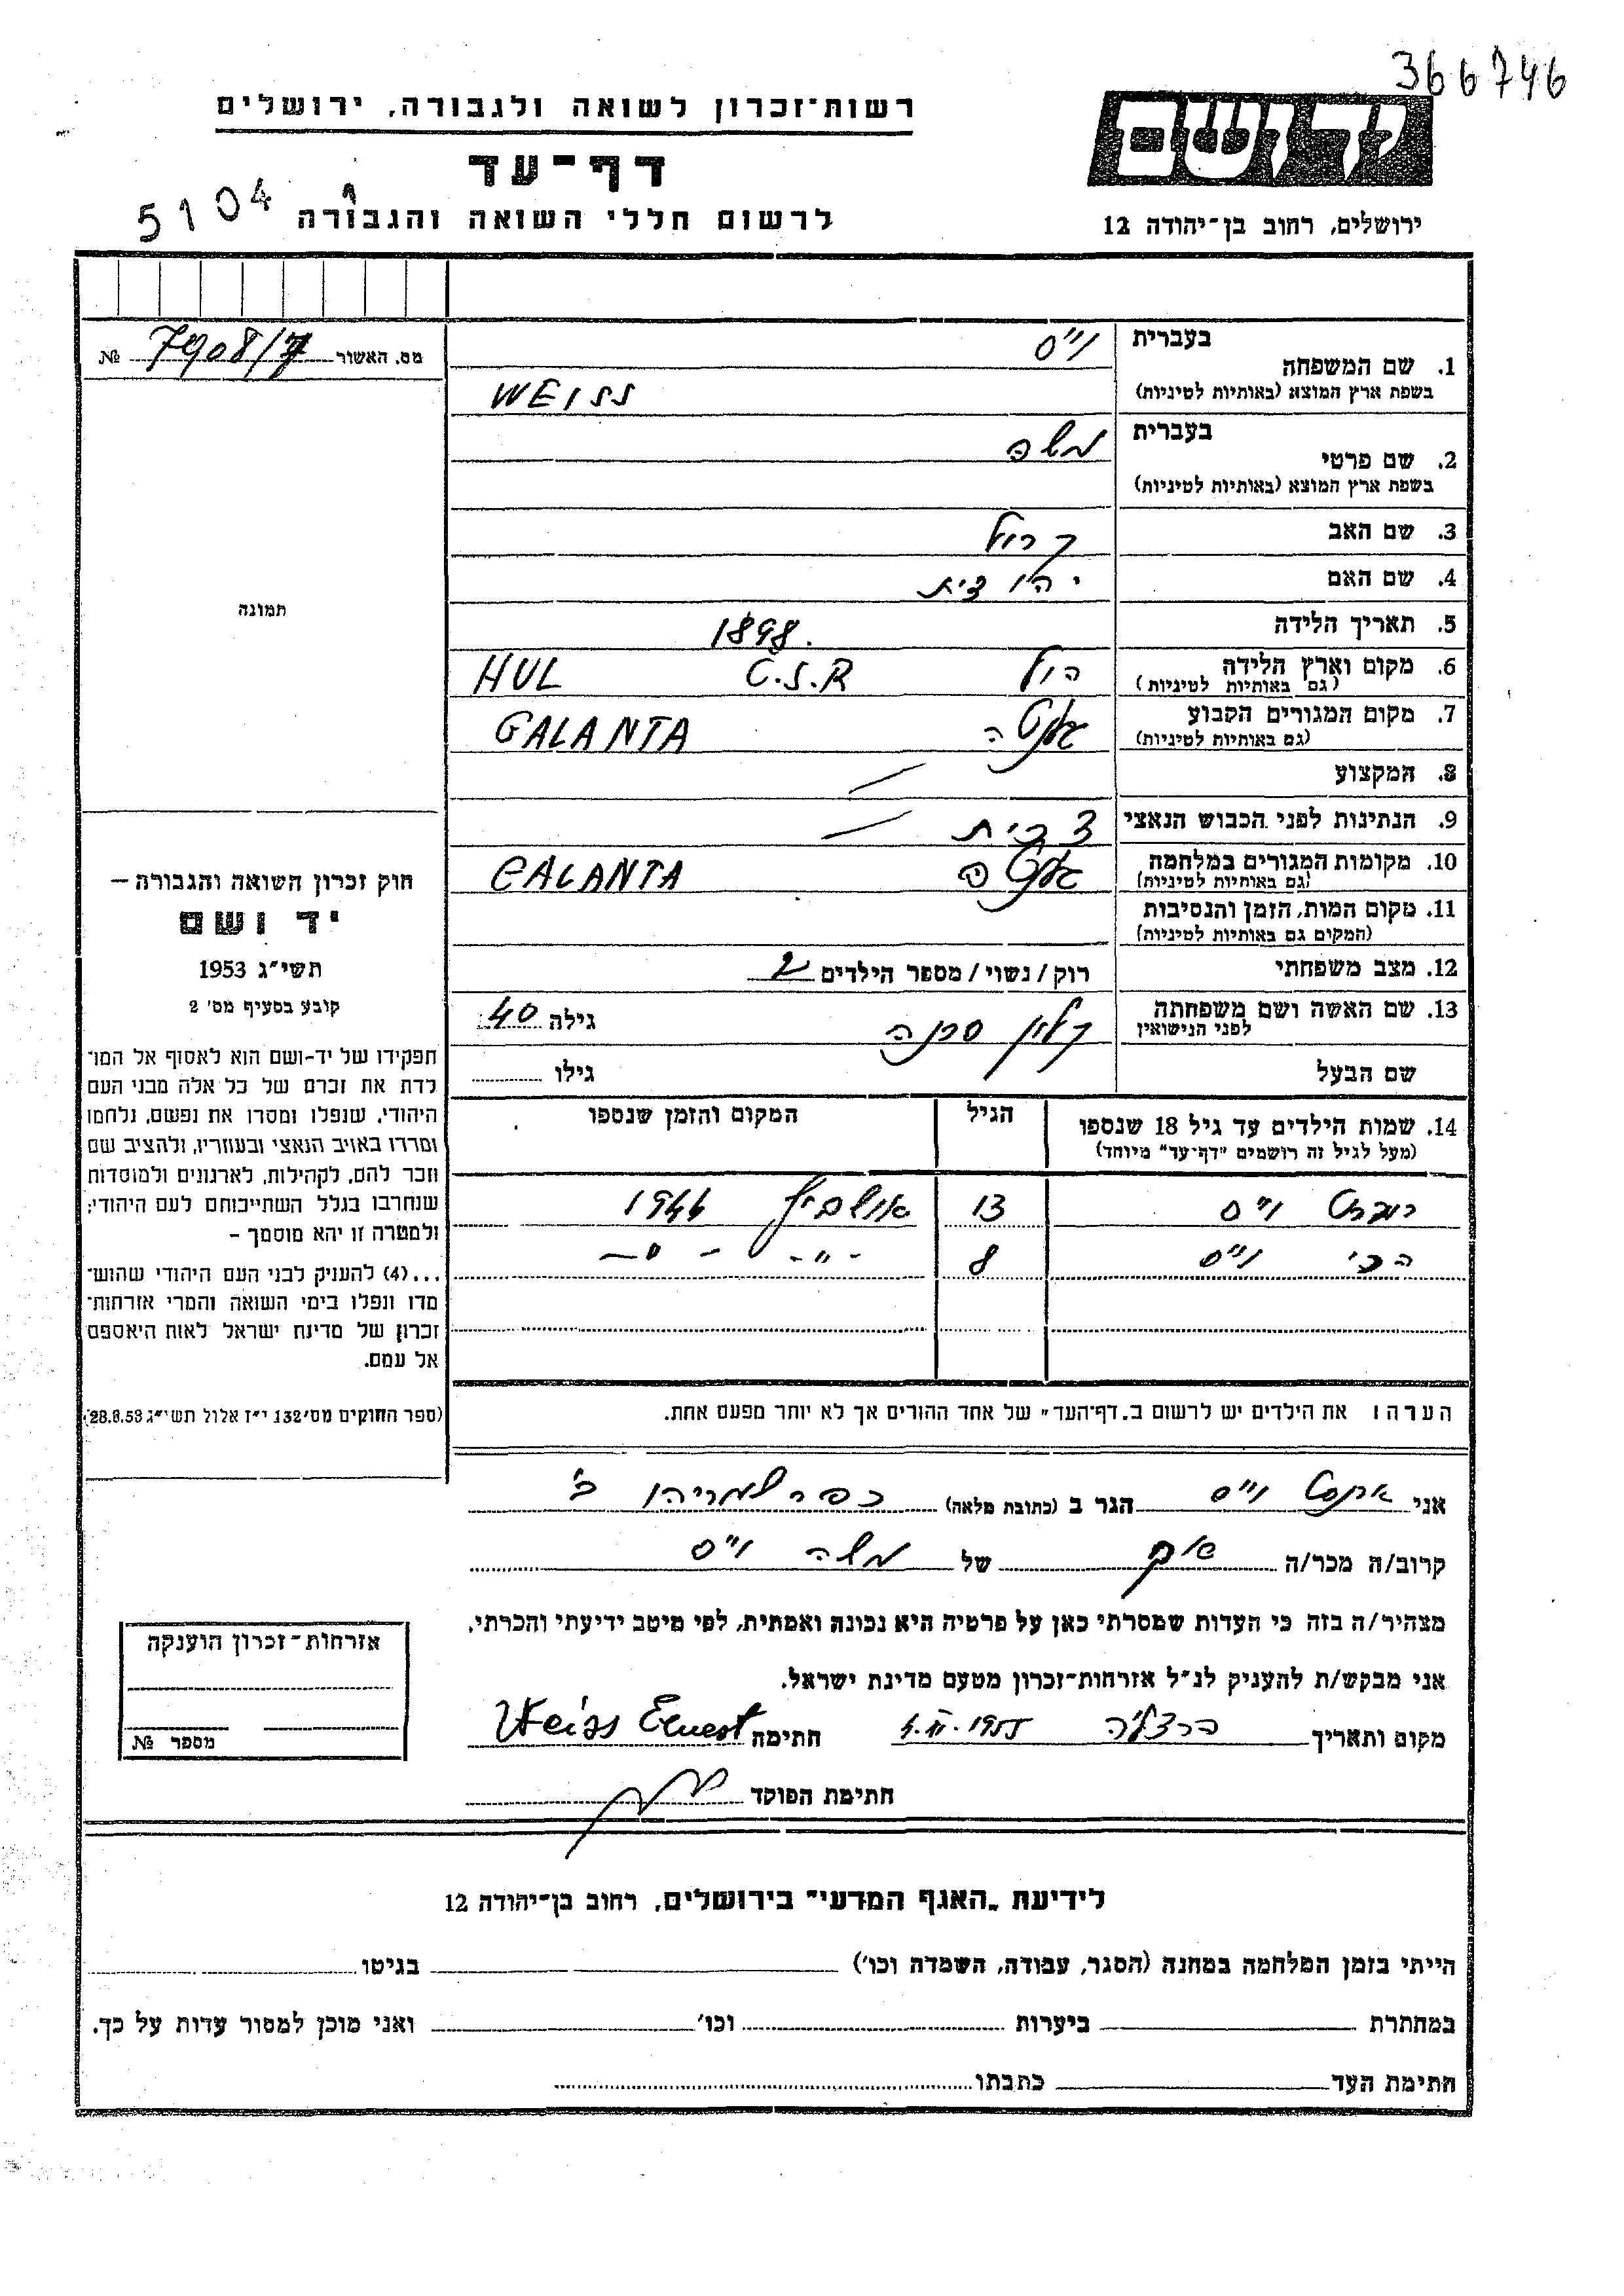 366746
רשות־זכרון לשואה ולגבורה, ירושלים
יד ושם
דף־עד
5104
לרשום חללי השואה והגבורה
ירושלים, רחוב בן־יהודה 12
מס. האשור 7908/7 №
1. שם המשפחה
בעברית וייס
בשפת ארץ המוצא (באותיות לטיניות) WEISS
2. שם פרטי
בעברית משה
בשפת ארץ המוצא (באותיות לטיניות)
3. שם האב קרול
4. שם האם יהודית
5. תאריך הלידה 1898.
6. מקום וארץ הלידה הול C.S.R HUL
(גם באותיות לטיניות)
7. מקום המגורים הקבוע GALANTA
(גם באותיות לטיניות)
8. המקצוע
9. הנתינות לפני הכבוש הנאצי
10. מקומות המגורים במלחמה GALANTA
(גם באותיות לטיניות)
11. מקום המות, הזמן והנסיבות
(המקום גם באותיות לטיניות)
12. מצב משפחתי רוק/נשוי/מספר הילדים 2
13. שם האשה ושם משפחתה גילה 40
לפני הנישואין
שם הבעל גילו
14. שמות הילדים עד גיל 18 שנספו הגיל המקום והזמן שנספו
(מעל לגיל זה רושמים "דף־עד" מיוחד)
רוברט וייס 13 אושביץ 1944
וייס 8 - " -
הערה: את הילדים יש לרשום ב„דף־העד" של אחד ההורים אך לא יותר מפעם אחת.
תמונה
חוק זכרון השואה והגבורה —
יד ושם
תשי"ג 1953
קובע בסעיף מס' 2
תפקידו של יד־ושם הוא לאסוף אל המו־
לדת את זכרם של כל אלה מבני העם
היהודי, שנפלו ומסרו את נפשם, נלחמו
ומרדו באויב הנאצי ובעוזריו, ולהציב שם
וזכר להם, לקהילות, לארגונים ולמוסדות
שנחרבו בגלל השתייכותם לעם היהודי;
ולמטרה זו יהא מוסמך –
...(4) להעניק לבני העם היהודי שהוש־
מדו ונפלו בימי השואה והמרי אזרחות־
זכרון של מדינת ישראל לאות היאספם
אל עמם.
(ספר החוקים מס' 132 י"ז אלול תשי"ג 28.8.53)
אני ארנסט וייס הגר ב (כתובת מלאה) כפר שמריהו ב'
קרוב/ה מכר/ה של משה וייס
מצהיר/ה בזה כי העדות שמסרתי כאן על פרטיה היא נכונה ואמתית, לפי מיטב ידיעתי והכרתי.
אני מבקש/ת להעניק לנ"ל אזרחות־זכרון מטעם מדינת ישראל.
מקום ותאריך הרצליה 1955 חתימה Weiss Ernest
חתימת הפוקד
אזרחות־זכרון הוענקה
מספר №
לידיעת „האגף המדעי" בירושלים, רחוב בן־יהודה 12
הייתי בזמן המלחמה במחנה (הסגר, עבודה, השמדה וכו') בגיטו
במחתרת ביערות וכו' ואני מוכן למסור עדות על כך.
חתימת העד כתבתו